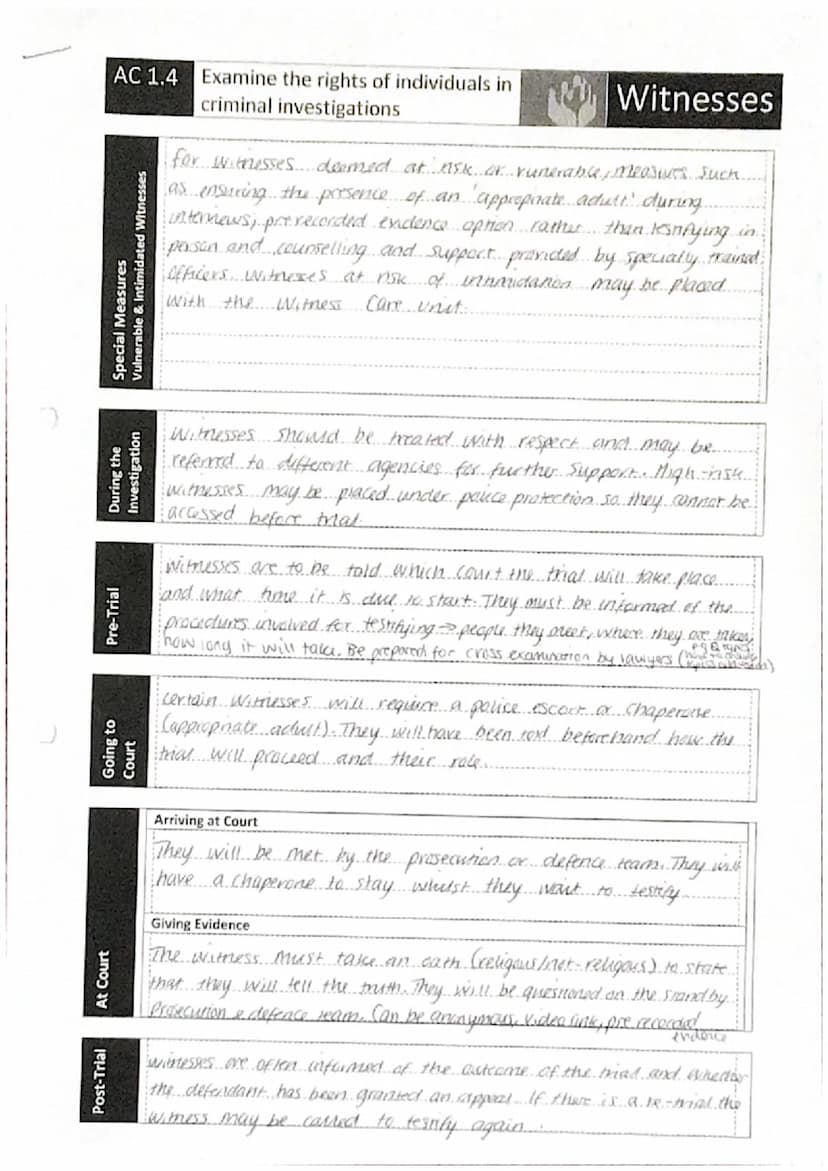 AC 1.4
Examine the rights of individuals in
criminal investigations
Witnesses
Special Measures
Vulnerable & Intimidated Witnesses
for witnesses deemed at risk or vunerable, measures such
as ensuring the presence of an 'appropriate adult' during
interviews, prerecorded evidence option rather than testifying in
person and counselling and support provided by specially trained
officers. Witnesses at risk of intimidation may be placed
with the Witness Care Unit.
During the
Investigation
Witnesses should be treated with respect and may be
referred to different agencies for further support. High-risk
witnesses may be placed under police protection so they cannot be
accessed before trial
Pre-Trial
Witnesses are to be told which court the trial will take place
and what time it is due to start. They must be informed of the
procedures involved for testifying → people they meet, where they are taken,
how long it will take. Be prepared for cross examination by lawyers (
Going to
Court
certain witnesses will require a police escort or chaperone
(appropriate adult). They will have been told beforehand how the
trial will proceed and their role.
At Court
Arriving at Court
They will be met by the prosecution or defence team. They will
have a chaperone to stay whilst they wait to testify
Giving Evidence
The witness must take an oath (religous/not-religous) to state
that they will tell the truth. They will be questioned on the stand by
prosecution & defence team. Can be anonymous, video link, pre recorded
evidence
Post-Trial
witnesses are often informed of the outcome of the trial and whether
the defendant has been granted an appeal. If there is a re-trial the
witness may be called to testify again.